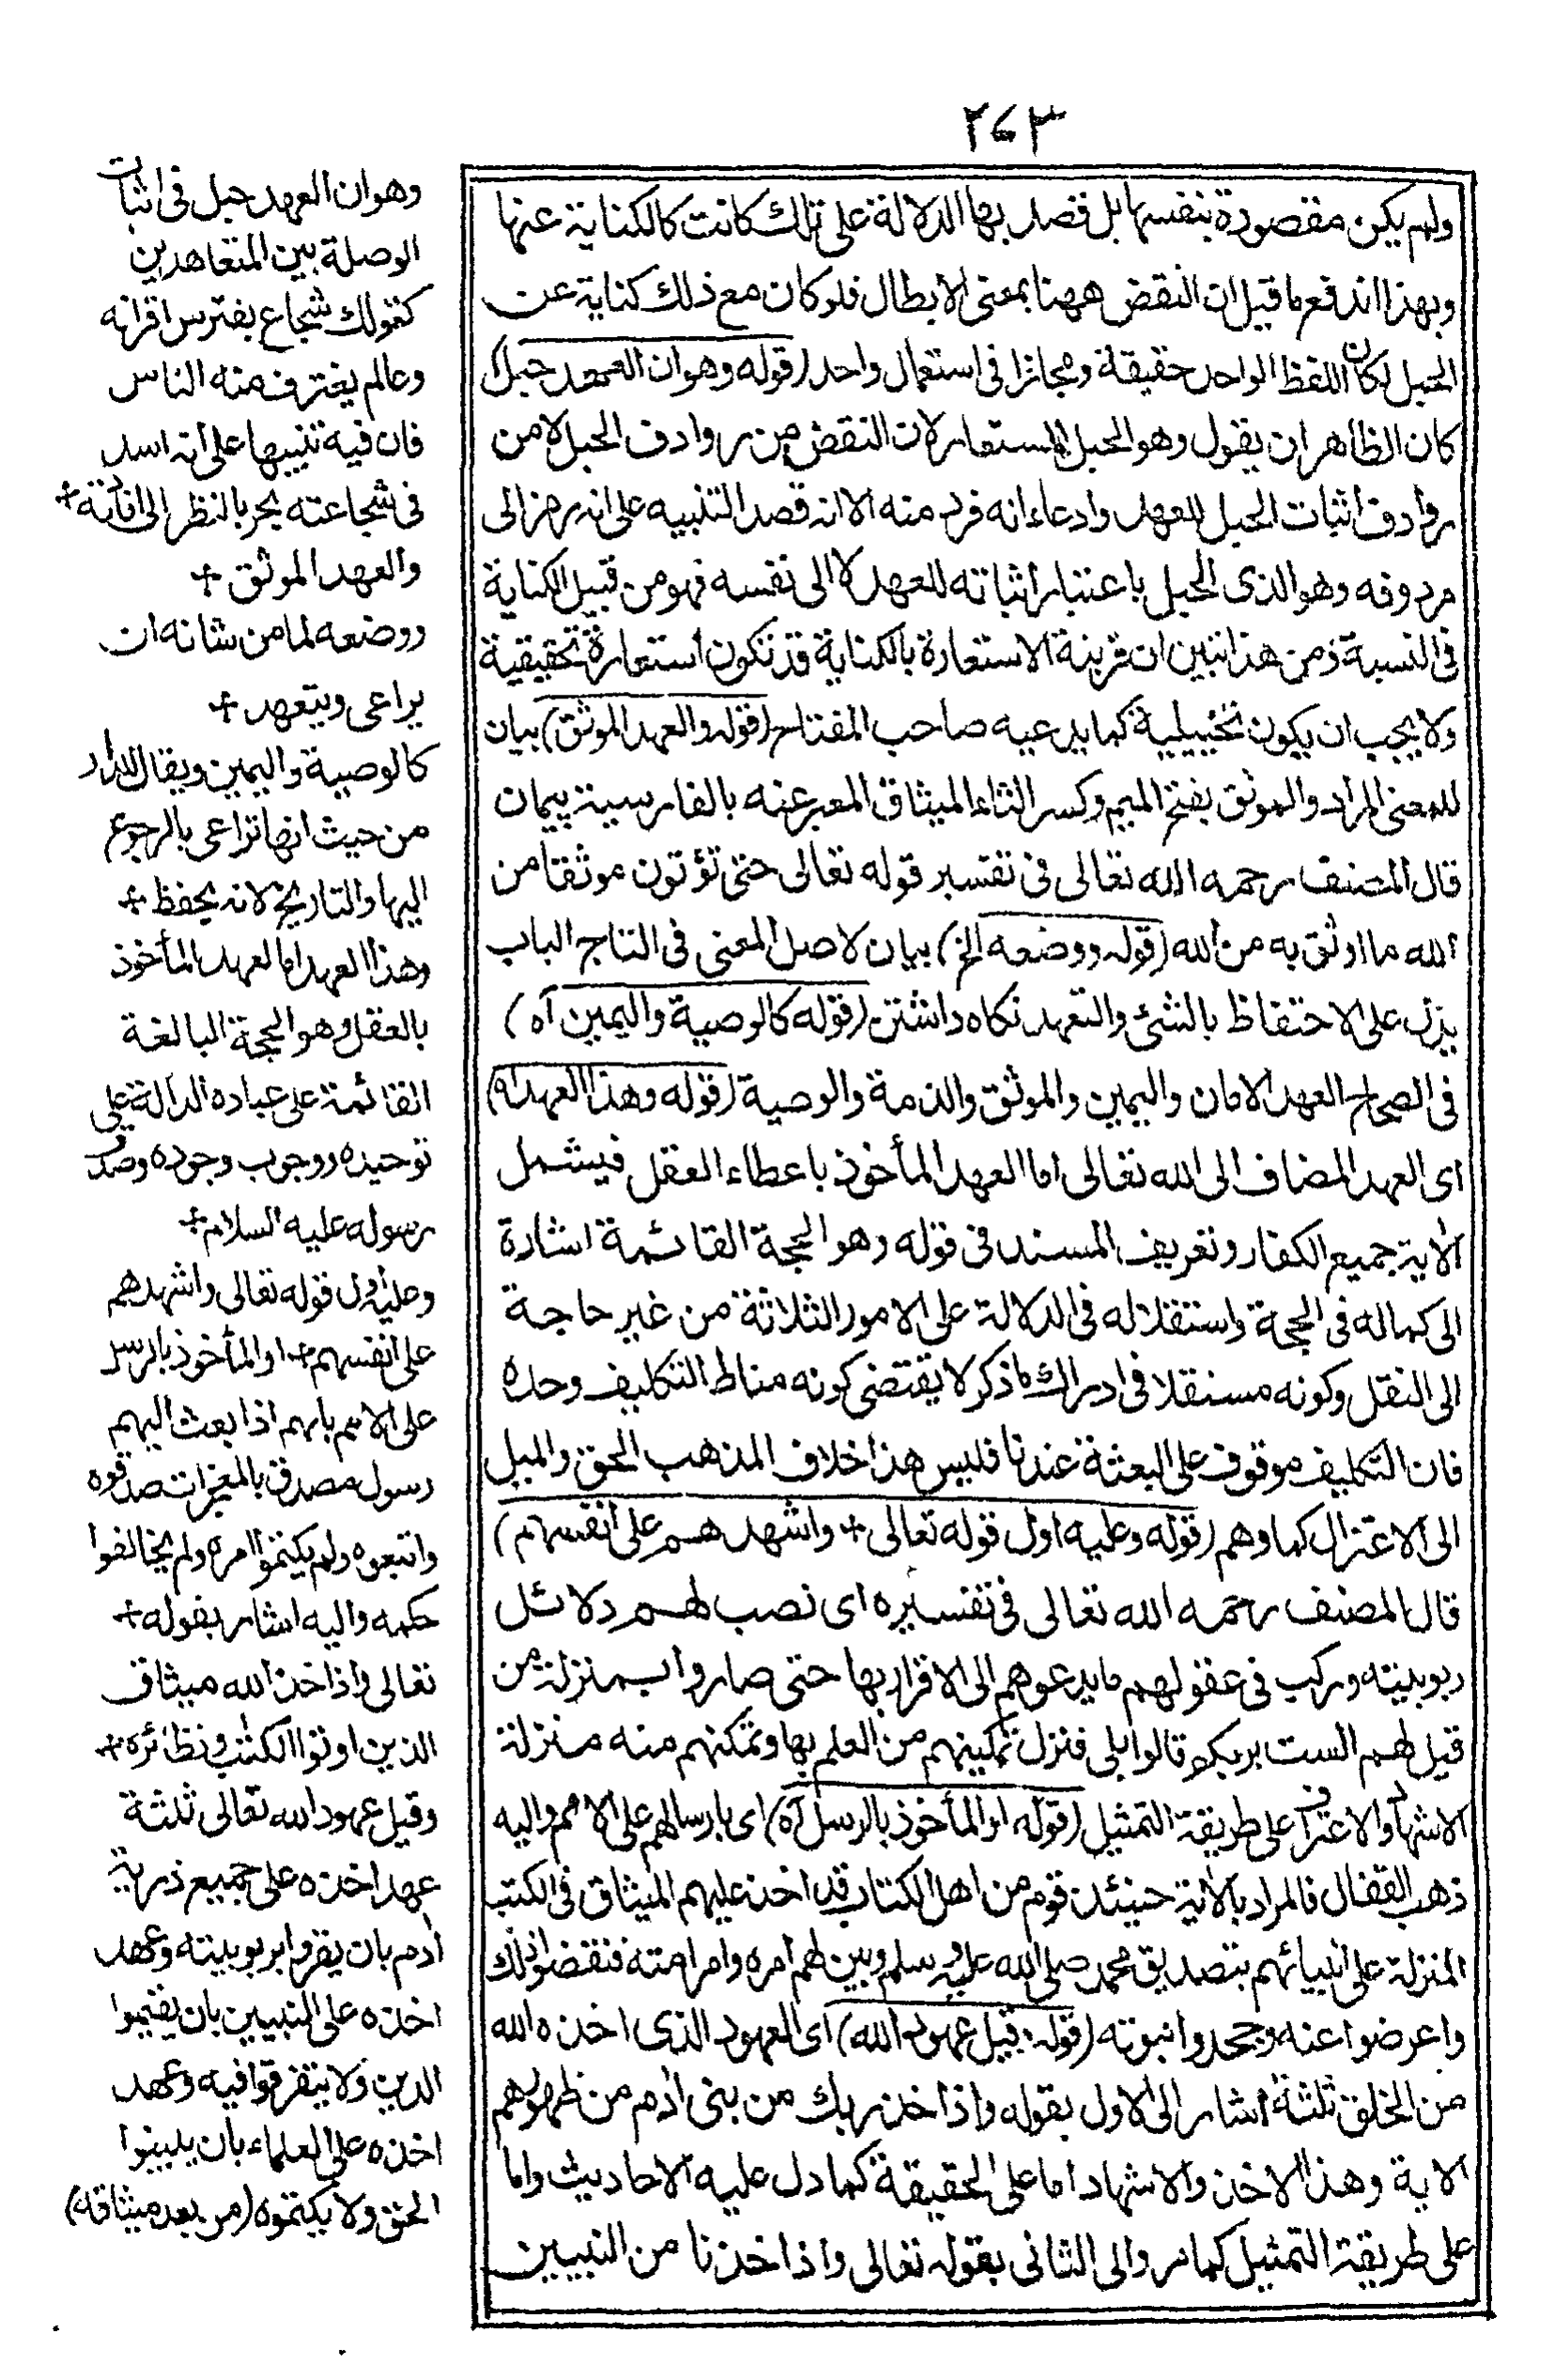 ٢٧٣
ولم يكن مقصودة بنفسها بل قصد بها الدلالة على تلك كانت كالكناية عنها
وبهذا اندفع ما قيل ان النقض ههنا بمعنى الابطال فلو كان مع ذلك كناية عن
الحبل لكان اللفظ الواحد حقيقة ومجازا فى استعمال واحد (قوله وهو ان العهد حبل)
كان الظاهر ان يقول وهو الحبل المستعار لان النقض من روادف الحبل لا من
روادف اثبات الحبل للعهد وادعاء انه فرد منه الا انه قصد التنبيه على انه رمز الى
مردوفه وهو الذى الحبل باعتبار اثباته للعهد لا الى نفسه فهو من قبيل الكناية
فى النسبة ومن هذا تبين ان قرينة الاستعارة بالكناية قد تكون استعارة تحقيقية
ولا يجب ان يكون تخييلية كما يدعيه صاحب المفتاح (قوله والعهد الموثق) بيان
للمعنى المراد والموثق بفتح الميم وكسر الثاء الميثاق المعبر عنه بالفارسية پيمان
قال المصنف رحمه الله تعالى فى تفسير قوله تعالى حتى تؤتون موثقا من
الله ما اوثق به من الله (قوله ووضعه الخ) بيان لاصل المعنى فى التاج الباب
يدل على الاحتفاظ بالشئ والتعهد نكاه داشتن (قوله كالوصية واليمين آه)
فى الصحاح العهد الامان واليمين والموثق والذمة والوصية (قوله وهذا العهد اه)
اى العهد المضاف الى الله تعالى اما العهد المأخوذ باعطاء العقل فيشمل
الاية جميع الكفار وتعريف المسند فى قوله وهو الحجة القائمة اشارة
الى كماله فى الحجة واستقلاله فى الدلالة على الامور الثلاثة من غير حاجة
الى النقل وكونه مستقلا فى ادراك ما ذكر لا يقتضى كونه مناط التكليف وحده
فان التكليف موقوف على البعثة عندنا فليس هذا خلاف المذهب الحق والميل
الى الاعتزال كما وهم (قوله وعليه اول قوله تعالى + واشهدهم على انفسهم)
قال المصنف رحمه الله تعالى فى تفسيره اى نصب لهم دلائل
ربوبيته وركب فى عقولهم ما يدعوهم الى الاقرار بها حتى صاروا بمنزلة من
قيل لهم الست بربكم قالوا بلى فنزل تمكينهم من العلم بها وتمكنهم منه منزلة
الاشهاد والاعتراف على طريقة التمثيل (قوله او المأخوذ بالرسل آه) اى بارسالهم على الامم واليه
ذهب القفال فالمراد بالاية حينئذ قوم من اهل الكتاب قد اخذ عليهم الميثاق فى الكتب
المنزلة على انبيائهم بتصديق محمد صلى الله عليه وسلم وبين لهم امره وامر امته فنقضوا ذلك
واعرضوا عنه وجحدوا نبوته (قوله وقيل عهود الله) اى العهود الذى اخذه الله
من الخلق ثلثة اشار الى الاول بقوله واذ اخذ ربك من بنى ادم من ظهورهم
الاية وهذا الاخذ والاشهاد اما على الحقيقة كما دل عليه الاحاديث واما
على طريقة التمثيل كما مر والى الثانى بقوله تعالى واذ اخذنا من النبيين
وهو ان العهد حبل فى اثبات
الوصلة بين المتعاهدين
كقولك شجاع يفترس اقرانه
وعالم يغترف منه الناس
فان فيه تنبيها على انه اسد
فى شجاعته بحر بالنظر الى افادته +
والعهد الموثق +
ووضعه لما من شانه ان
يراعى ويتعهد +
كالوصية واليمين ويقال للدار
من حيث انها تراعى بالرجوع
اليها والتاريخ لانه يحفظ +
وهذا العهد اما العهد المأخوذ
بالعقل وهو الحجة البالغة
القائمة على عباده الدالة على
توحيده ووجوب وجوده وصدق
رسوله عليه السلام +
وعليه اول قوله تعالى واشهدهم
على انفسهم + او المأخوذ بالرسل
على الامم بانهم اذا بعث اليهم
رسول مصدق بالمعجزات صدقوه
واتبعوه ولم يكتموا امره ولم يخالفوا
حكمه واليه اشار بقوله +
تعالى واذ اخذ الله ميثاق
الذين اوتوا الكتب ونظائره +
وقيل عهود الله تعالى ثلثة
عهد اخذه على جميع ذرية
ادم بان يقروا بربوبيته وعهد
اخذه على النبيين بان يقيموا
الدين ولا يتفرقوا فيه وعهد
اخذه على العلماء بان يبينوا
الحق ولا يكتموه (من بعد ميثاقه)